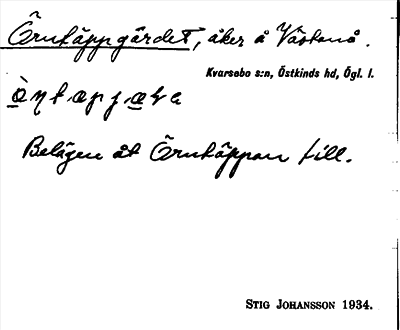 Örntäppgärdet, åker å Västanå.
Kvarsebo s:n, Östkinds hd, Ögl. l.
Belägen åt Örntäppan till.
Stig Johansson 1934.